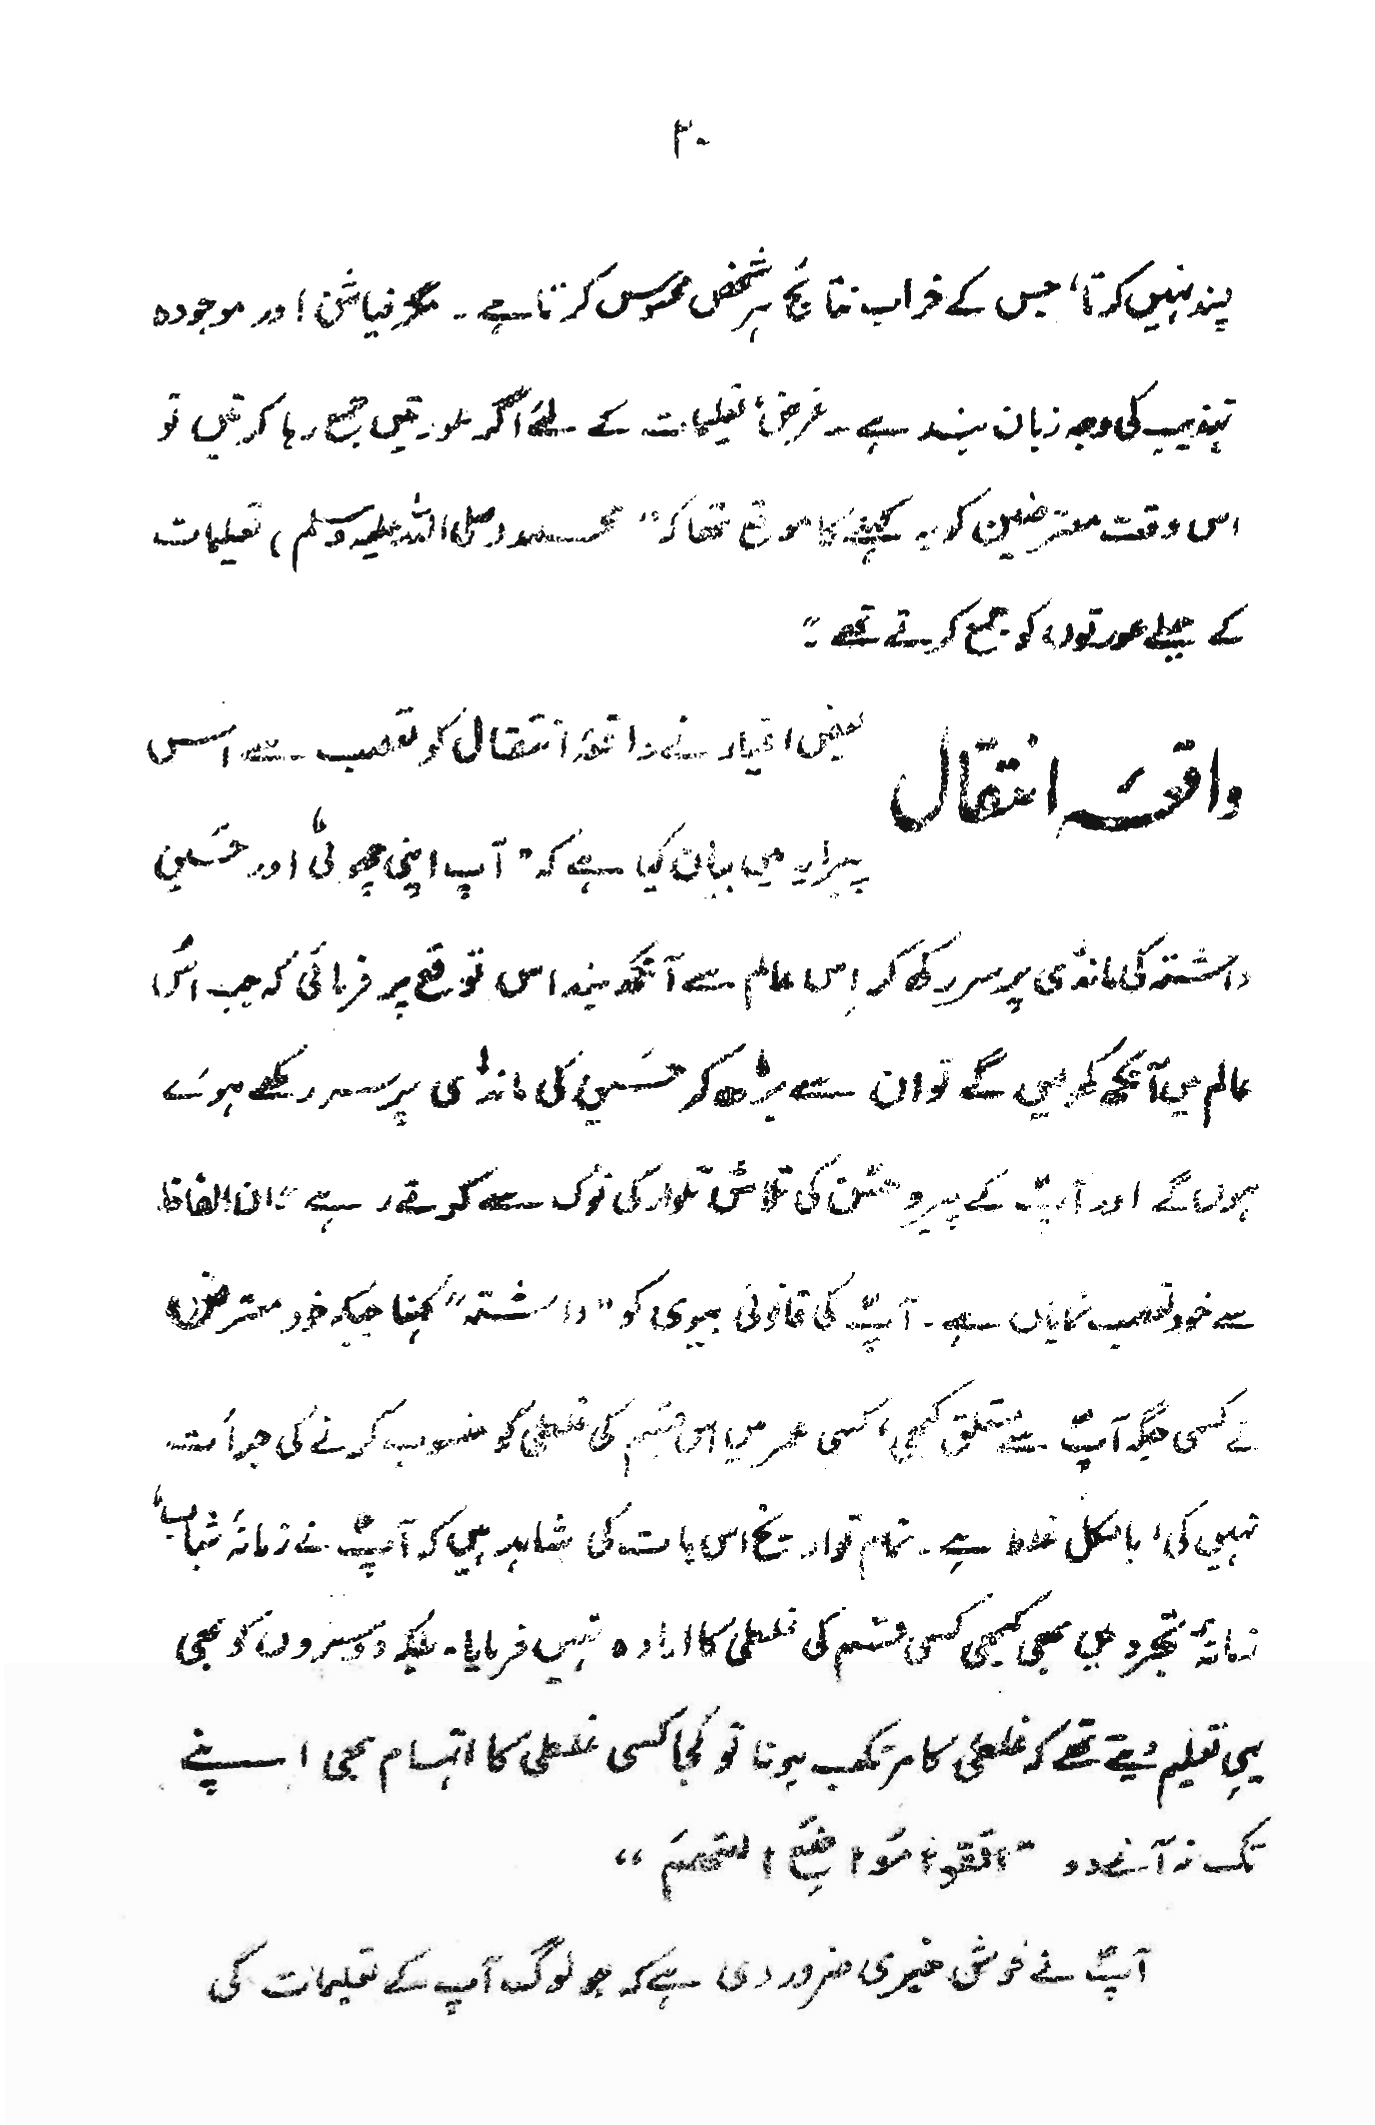 ۳۰
پسند نہیں کرتا، جس کے خراب نتائج ہر شخص محسوس کرتا ہے۔ مگر فیاشن اور موجودہ
تہذیب کی وجہ زبان بند ہے۔ غرض، تعلیمات کے لئے اگر عورتیں جمع رہا کرتیں تو
اس وقت معترضین کو یہ کہنے کا موقع تھا کہ "محمد (صلی اللہ علیہ وسلم) تعلیمات
کے حیلے عورتوں کو جمع کرتے تھے"۔
واقعہ انتقال
بعض اغیار نے واقعۂ انتقال کو تعصب سے اس
پیرایہ میں بیان کیا ہے کہ "آپ اپنی چھوٹی اور حسین
داشتہ کی مانڈی پر سر رکھ کر اِس عالم سے آنکھ بند اس توقع پر فرمائی کہ جب اُس
عالم میں آنکھ کھولیں گے تو ان سے بڑھ کر حسین کی مانڈی پر سر رکھے ہوئے
ہوں گے اور آپؐ کے پیرو حسن کی تلاش تلوار کی نوک سے کرتے رہے" ان الفاظ
سے خود تعصب نمایاں ہے۔ آپؐ کی قانونی بیوی کو "داشتہ" کہنا جبکہ خود معترضین
نے کسی جگہ آپؐ سے متعلق کبھی، کسی عمر میں اس قسم کی غلطی کو منسوب کرنے کی جرأت
نہیں کی، بالکل غلط ہے۔ تمام تواریخ اس بات کی شاہد ہیں کہ آپؐ نے زمانۂ شباب،
زمانۂ تجرد میں بھی کبھی کسی قسم کی غلطی کا ارادہ نہیں فرمایا۔ بلکہ دوسروں کو بھی
یہی تعلیم دیتے تھے کہ غلطی کا مرتکب ہونا تو کجا کسی غلطی کا اتہام بھی اپنے
تک نہ آنے دو "اتقوا مواضع التھم"
آپؐ نے خوش خبری ضرور دی ہے کہ جو لوگ آپ کے تعلیمات کی